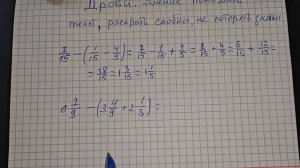 Дроби. Умение понимать
текст, раскрыть скобки, не потерять знаки.
7/15 − (1/15 − 4/5) = 7/15 − 1/15 + 4/5 = 6/15 + 4/5 = 6/15 + 12/15 =
= 18/15 = 1 3/15 = 1 1/5
− (3 4/9 + 2 1/3) =